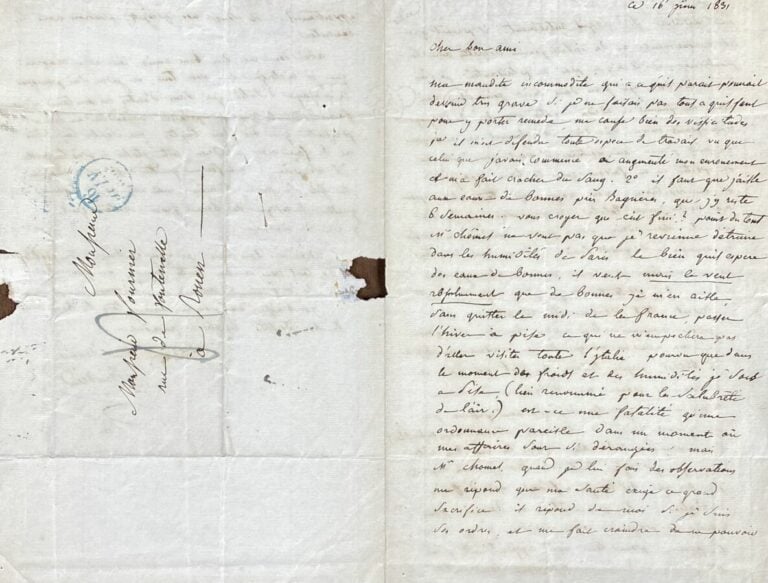 Monsieur
Monsieur Fournier
rue de fontenelle
à Rouen
ce 16 juin 1831
cher bon ami
ma maudite incommodité qui a ce qu'il parait pouvait
devenir très grave si je ne faisais pas tout ce qu'il faut
pour y porter remede me cause bien des vicissitudes
1o il m'est defendu toute espece de travail vu que
celui que j'avais commencé a augmenté mon enrouement
et m'a fait cracher du sang. 2o il faut que j'aille
aux eaux de bonnes près Bagnères, que j'y reste
6 semaines. vous croyez que c'est fini? point du tout
Mr chomel ne veut pas que je revienne détruire
dans les humidités de Paris le bien qu'il espere
des eaux de bonnes, il veut mais le veut
absolument que de bonnes je m'en aille,
sans quitter le midi de la france, passer
l'hiver à pise ce qui ne m'empechera pas
d'aller visiter toute l'italie pourvu que dans
le moment des froids et des humidités je sois
a Pise (lieu renommé pour la salubrité
de l'air.) est-ce une fatalité qu'une
ordonnance pareille dans un moment où
mes affaires sont si derangées. mais
Mr Chomel, quand je lui fais des observations
me répond que ma santé exige ce grand
sacrifice. il répond de moi si je suis
ses ordres, et me fait craindre de ne pouvoir